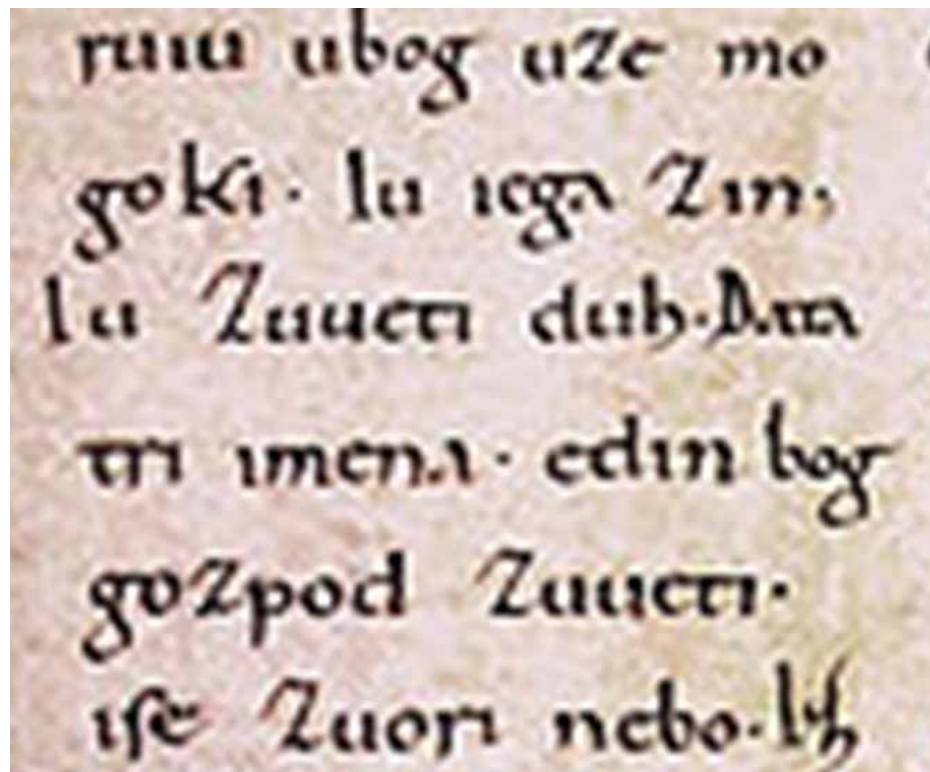 ruiu ubog uze mo
goki. Iu iega Zin.
Iu Zuueti duh. Data
tri imena. edin bog
gozpod Zuueti.
iſe Zuori nebo.